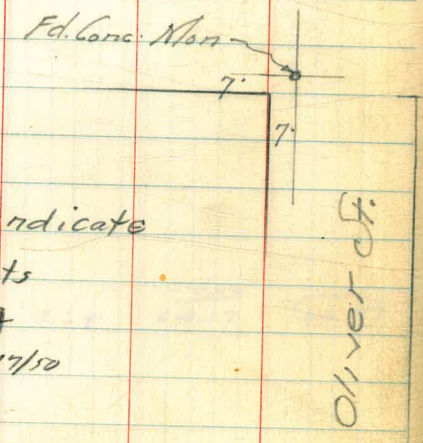 Fd. Conc. Mon
7'
7'
ndicate
ts
17/50
Oliver St.